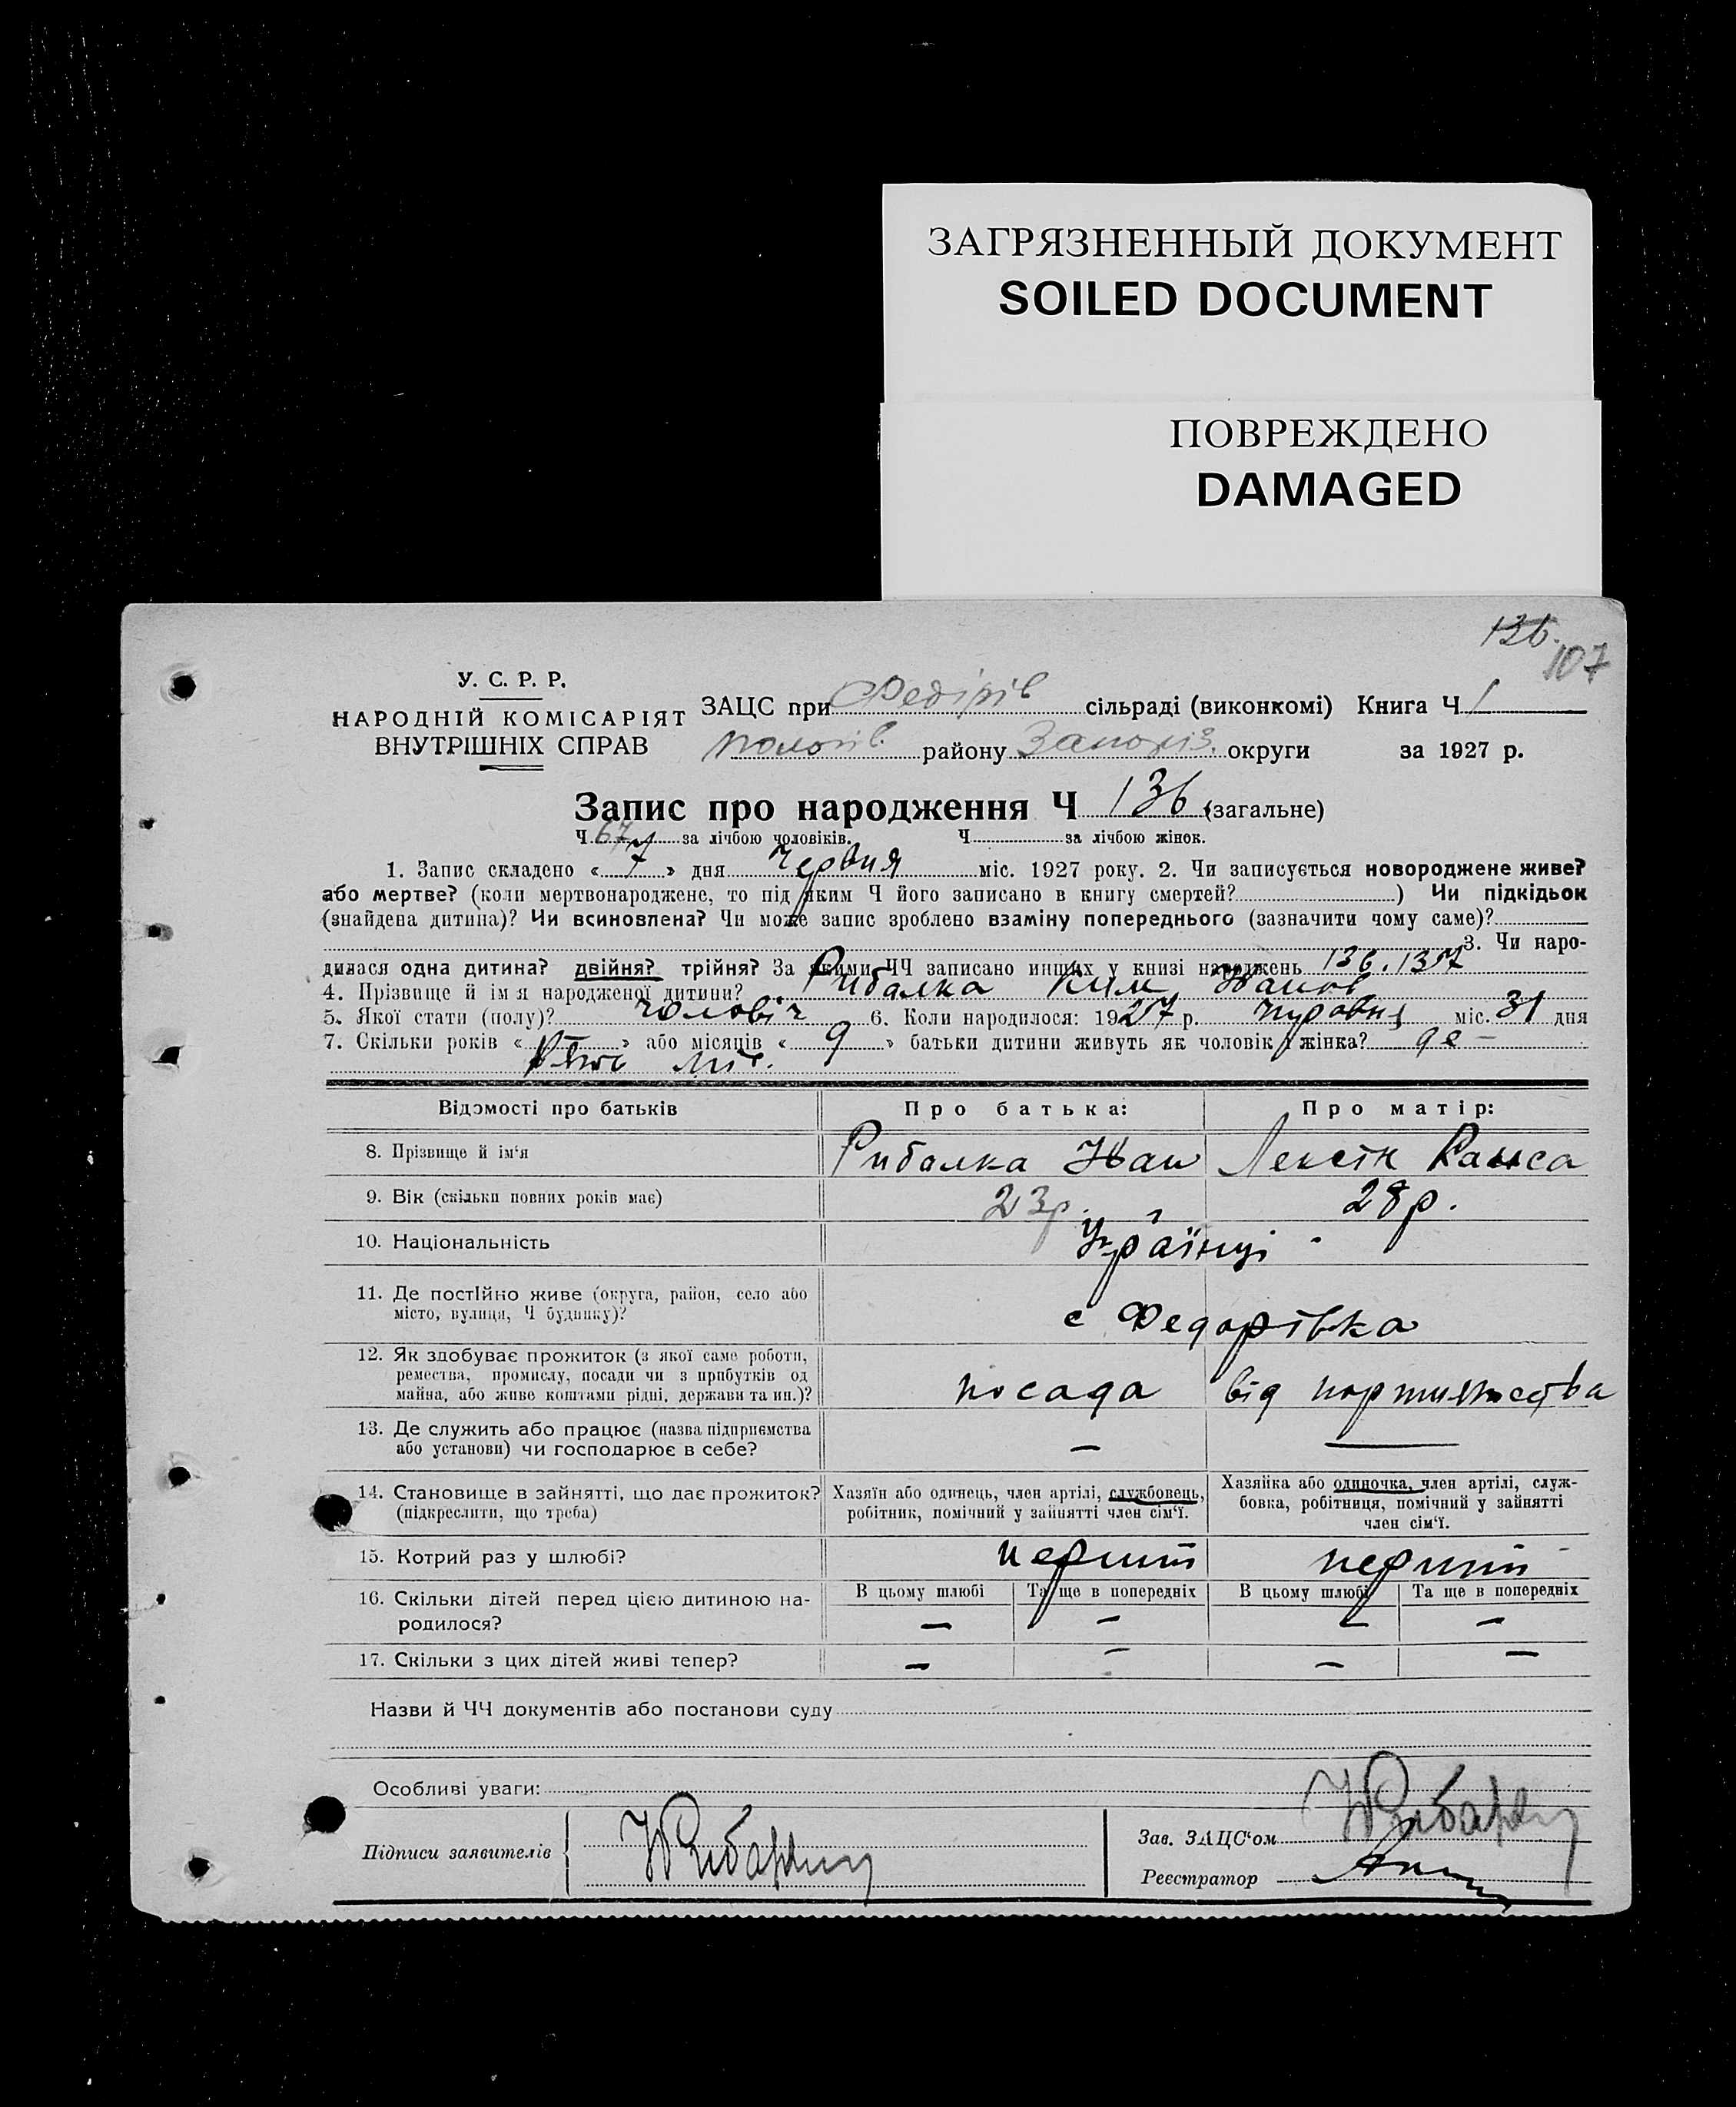 ЗАГРЯЗНЕННЫЙ ДОКУМЕНТ
SOILED DOCUMENT
ПОВРЕЖДЕНО
DAMAGED
136.
107
У. С. Р. Р.
НАРОДНІЙ КОМІСАРІЯТ
ВНУТРІШНІХ СПРАВ
ЗАЦС при Федірів сільраді (виконкомі) Книга Ч 1
пологів. району Запоріз. округи за 1927 р.
Запис про народження Ч 136 (загальне)
Ч 67 за лічбою чоловіків. Ч за лічбою жінок.
1. Запис складено « 7 » дня червня міс. 1927 року. 2. Чи записується новороджене живе?
або мертве? (коли мертвонароджене, то під яким Ч його записано в книгу смертей? ) Чи підкідьок
(знайдена дитина)? Чи всиновлена? Чи може запис зроблено взаміну попереднього (зазначити чому саме)?
3. Чи наро-
дилася одна дитина? двійня? трійня? За якими ЧЧ записано инших у книзі народжень 136. 137
4. Прізвище й ім'я народженої дитини? Рибалка Ким Іванов
5. Якої стати (полу)? чоловіч 6. Коли народилося: 1927 р. міс. 31 дня
7. Скільки років « — » або місяців « 9 » батьки дитини живуть як чоловік і жінка? де -
міс.
Відомості про батьків
Про батька:
Про матір:
8. Прізвище й ім‘я
Рибалка Іван
Лексін Раїса
9. Вік (скільки повних років має)
23р.
28р.
10. Національність
Українці
11. Де постійно живе (округа, район, село або
місто, вулиця, Ч будинку)?
с Федорівка
12. Як здобуває прожиток (з якої саме роботи,
ремества, промислу, посади чи з прибутків од
майна, або живе коштами рідні, держави та ин.)?
посада
від
13. Де служить або працює (назва підприємства
або установи) чи господарює в себе?
—
—
14. Становище в зайнятті, що дає прожиток?
(підкреслити, що треба)
Хазяїн або одинець, член артілі, службовець,
робітник, помічний у зайнятті член сім‘ї.
Хазяйка або одиночка, член артілі, служ-
бовка, робітниця, помічний у зайнятті
член сім‘ї.
15. Котрий раз у шлюбі?
перший
перший
16. Скільки дітей перед цією дитиною на-
родилося?
В цьому шлюбі
Та ще в попередніх
В цьому шлюбі
Та ще в попередніх
— — — —
17. Скільки з цих дітей живі тепер?
— — — —
Назви й ЧЧ документів або постанови суду
Особливі уваги:
Підписи заявителів
Зав. ЗАЦС‘ом
Реєстратор